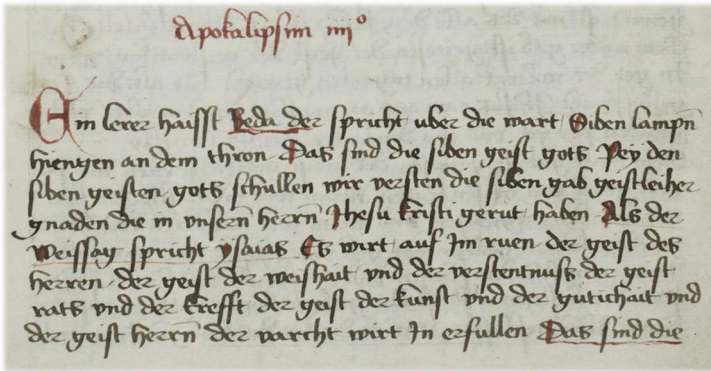 Apokalipsim iiijº
Ein lerer haisst Beda der spricht uber die wart Siben lampn̄
hiengen an dem thron Das sind die siben geist gots Pey den
siben geisten gots schullen wir versten die siben gab geistleiher
gnaden die in unsern̄ herrn̄ Jhesu Kristi gerut haben Als der
weissag spricht ysaias Es wirt auf Im ruen der geist des
herren der geist der weishait und der verstentnuss der geist
rats und der krefft der geist der kunst und der gutichait und
der geist herrn̄ der varcht wirt In erfullen Das sind die